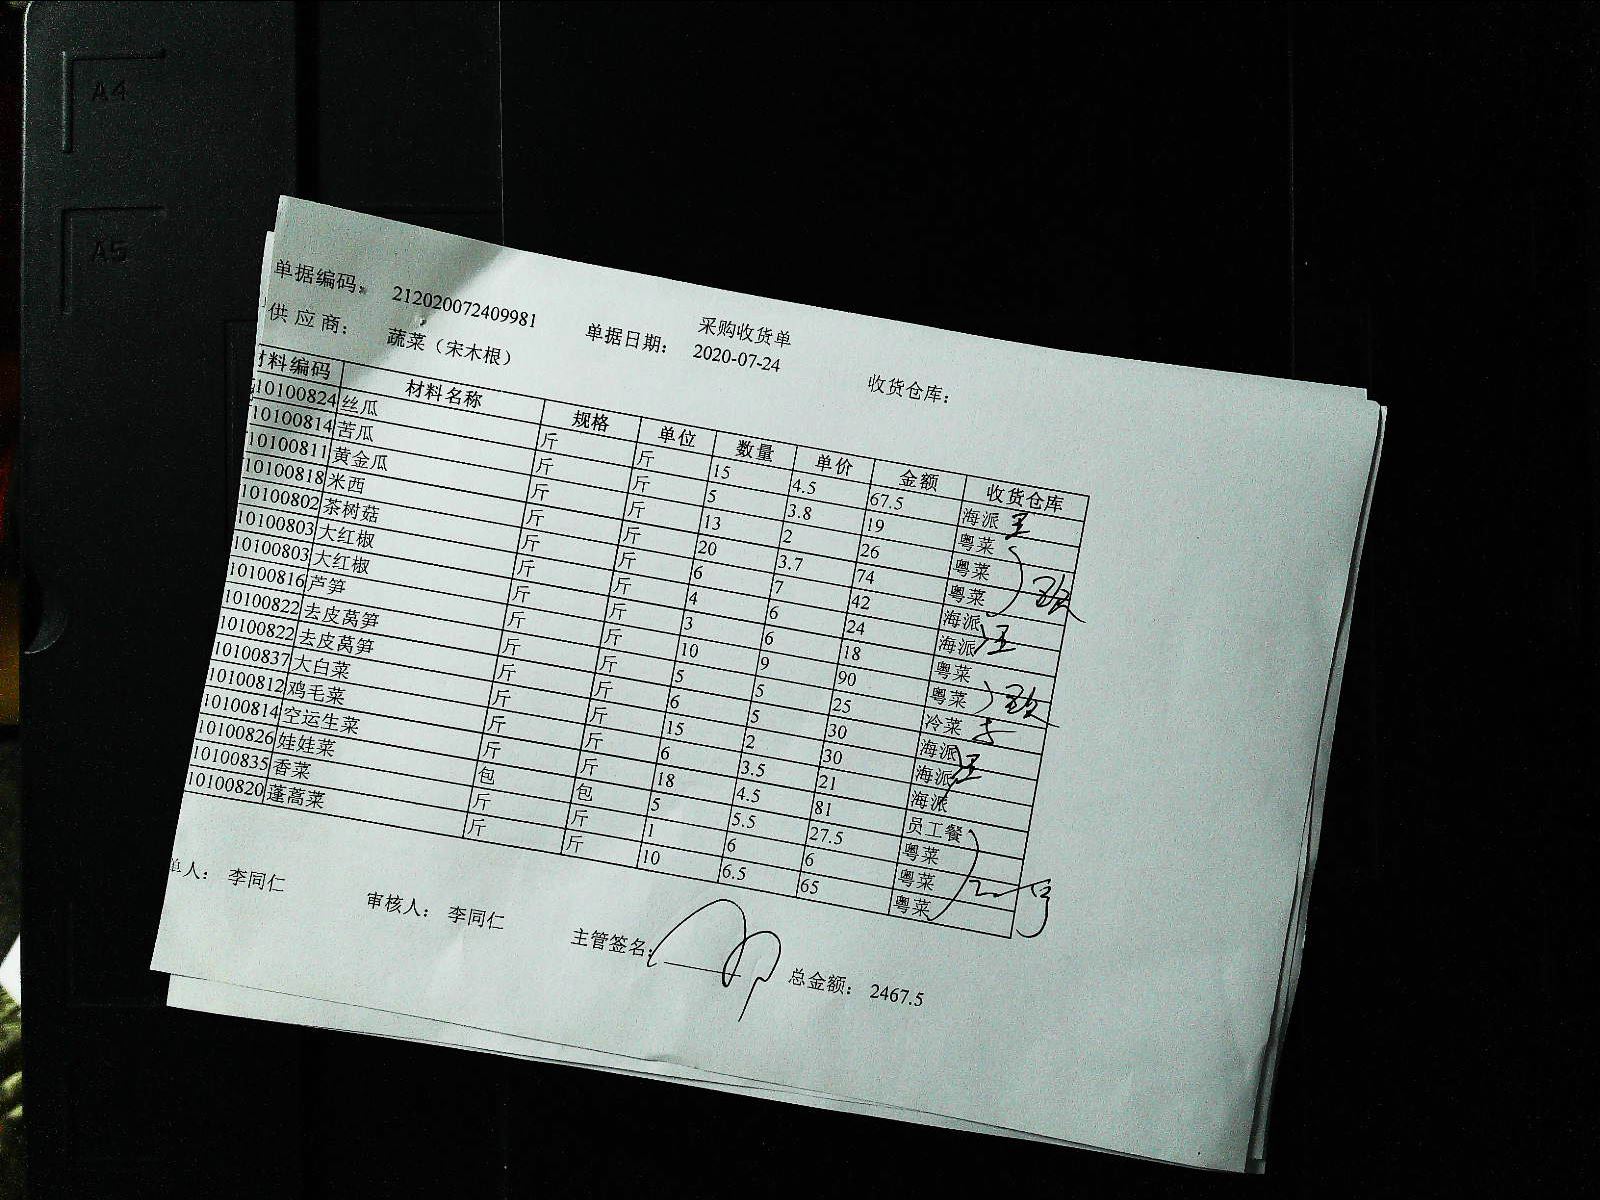 A4
A5
采购收货单
单据编码： 212020072409981 单据日期： 2020-07-24 收货仓库：
供 应 商： 蔬菜（宋木根）
材料编码 材料名称 规格 单位 数量 单价 金额 收货仓库
10100824 丝瓜 斤 斤 15 4.5 67.5 海派
10100814 苦瓜 斤 斤 5 3.8 19 粤菜
10100811 黄金瓜 斤 斤 13 2 26 粤菜
10100818 米西 斤 斤 20 3.7 74 粤菜
10100802 茶树菇 斤 斤 6 7 42 海派
10100803 大红椒 斤 斤 4 6 24 海派
10100803 大红椒 斤 斤 3 6 18 粤菜
10100816 芦笋 斤 斤 10 9 90 粤菜
10100822 去皮莴笋 斤 斤 5 5 25 冷菜
10100822 去皮莴笋 斤 斤 6 5 30 海派
10100837 大白菜 斤 斤 15 2 30 海派
10100812 鸡毛菜 斤 斤 6 3.5 21 海派
10100814 空运生菜 斤 斤 18 4.5 81 员工餐
10100826 娃娃菜 包 包 5 5.5 27.5 粤菜
10100835 香菜 斤 斤 1 6 6 粤菜
10100820 蓬蒿菜 斤 斤 10 6.5 65 粤菜
单人： 李同仁 审核人： 李同仁 主管签名： 总金额： 2467.5